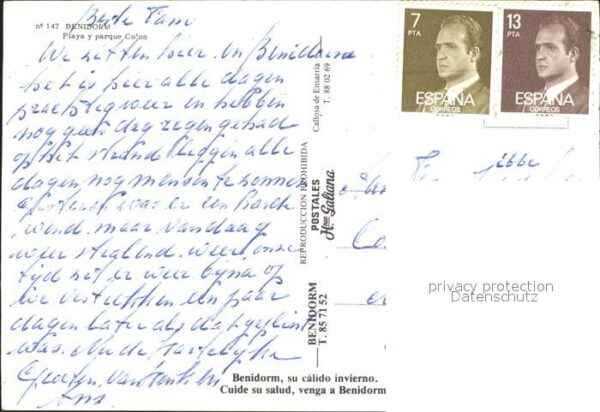 Beste Fam
nº 147 BENIDORM
Playa y parque Colon
We zitten hier in Benidorm
het is hier alle dagen
prachtig weer en hebben
nog geen dag regen gehad
op het strand liggen alle
dagen nog mensen te zonnen
was er een
wind maar vandaag
weer stralend weer, onze
tijd zit er weer bijna op
we vertrekken een paar
dagen later als dat gepland
was. Nu de hartelijke
Groeten, van
Ans
Callosa de Ensarria
T. 88 02 69
REPRODUCCION PROHIBIDA
POSTALES
Hnos Galiana
BENIDORM
T. 85 71 52
Benidorm, su cálido invierno.
Cuide su salud, venga a Benidorm
7
PTA
ESPAÑA
CORREOS
13
PTA
ESPAÑA
CORREOS
privacy protection
Datenschutz